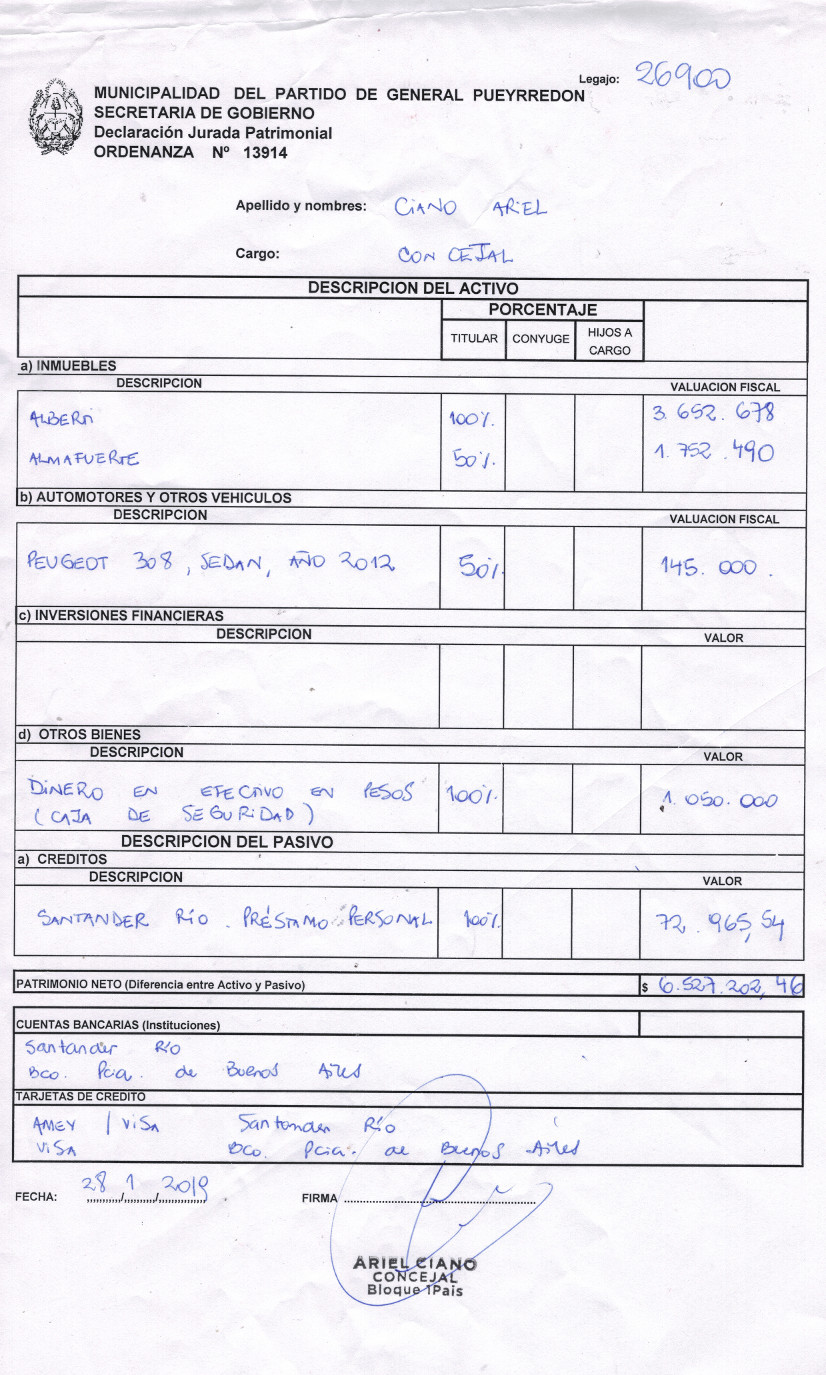 Legajo: 26900
MUNICIPALIDAD DEL PARTIDO DE GENERAL PUEYRREDON
SECRETARIA DE GOBIERNO
Declaración Jurada Patrimonial
ORDENANZA Nº 13914
Apellido y nombres: CIANO ARIEL
Cargo: CONCEJAL
DESCRIPCION DEL ACTIVO
PORCENTAJE
TITULAR CONYUGE HIJOS A CARGO
a) INMUEBLES
DESCRIPCION VALUACION FISCAL
ALBERTI 100% 3.652.678
ALMAFUERTE 50% 1.752.490
b) AUTOMOTORES Y OTROS VEHICULOS
DESCRIPCION VALUACION FISCAL
PEUGEOT 308, SEDAN, AÑO 2012 50% 145.000.
c) INVERSIONES FINANCIERAS
DESCRIPCION VALOR
d) OTROS BIENES
DESCRIPCION VALOR
DINERO EN EFECTIVO EN PESOS 100% 1.050.000
(CAJA DE SEGURIDAD)
DESCRIPCION DEL PASIVO
a) CREDITOS
DESCRIPCION VALOR
SANTANDER RÍO. PRÉSTAMO PERSONAL 100% 72.965,54
PATRIMONIO NETO (Diferencia entre Activo y Pasivo) $ 6.527.202,46
CUENTAS BANCARIAS (Instituciones)
Santander Río
Bco. Pcia. de Buenos Aires
TARJETAS DE CREDITO
AMEX / VISA Santander Río
VISA Bco. Pcia. de Buenos Aires
FECHA: 28/1/2019 FIRMA
ARIEL CIANO
CONCEJAL
Bloque 1Pais